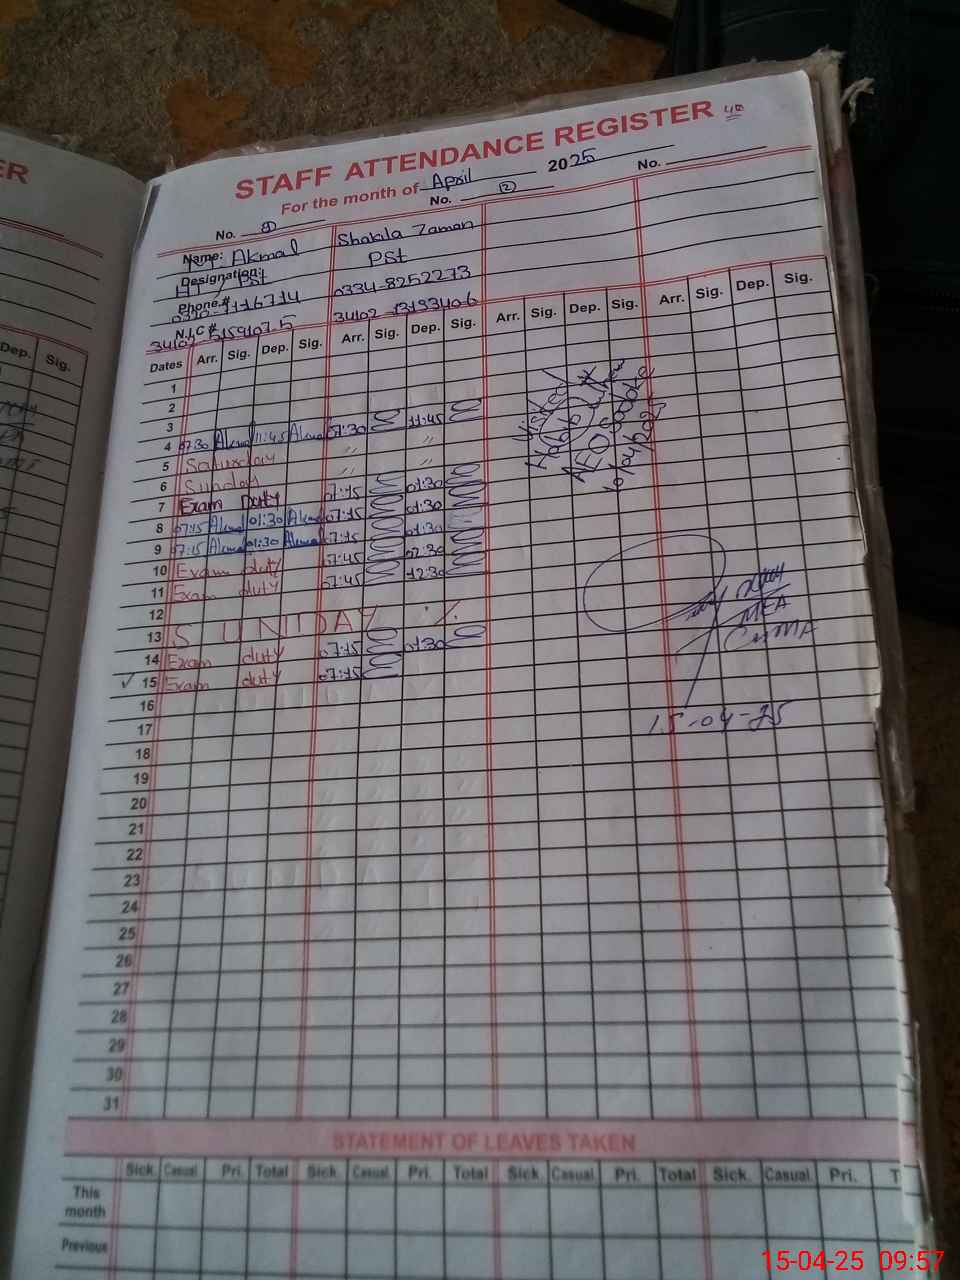 ER
STAFF ATTENDANCE REGISTER 40
For the month of April 2025
No. No. 12 No.
Name: Akmal Shakila Zaman
Designation: PST PST
Phone.# 0334-8252273
N.I.C #
Dep. Sig.
Dates Arr. Sig. Dep. Sig. Arr. Sig. Dep. Sig. Arr. Sig. Dep. Sig. Arr. Sig. Dep. Sig.
1
2
3
4 07:30 Akmal 11:45 Akmal 07:30 11:45
5 Saturday " "
6 Sunday " "
7 Exam Duty 07:15 01:30
8 07:15 Akmal 01:30 Akmal 07:15 01:30
9 07:15 Akmal 01:30 Akmal 07:15 01:30
10 Exam duty 07:45 02:30
11 Exam duty 07:45 12:30
12
13 SUNDAY
14 Exam duty 07:15 01:30
✓ 15 Exam duty 07:15
16
17
18
19
20
21
22
23
24
25
26
27
28
29
30
31
Visited
AEO
MEA
15-04-25
STATEMENT OF LEAVES TAKEN
Sick. Casual Pri. Total Sick. Casual. Pri. Total Sick. Casual. Pri. Total Sick. Casual. Pri. T
This month
Previous
15-04-25 09:57